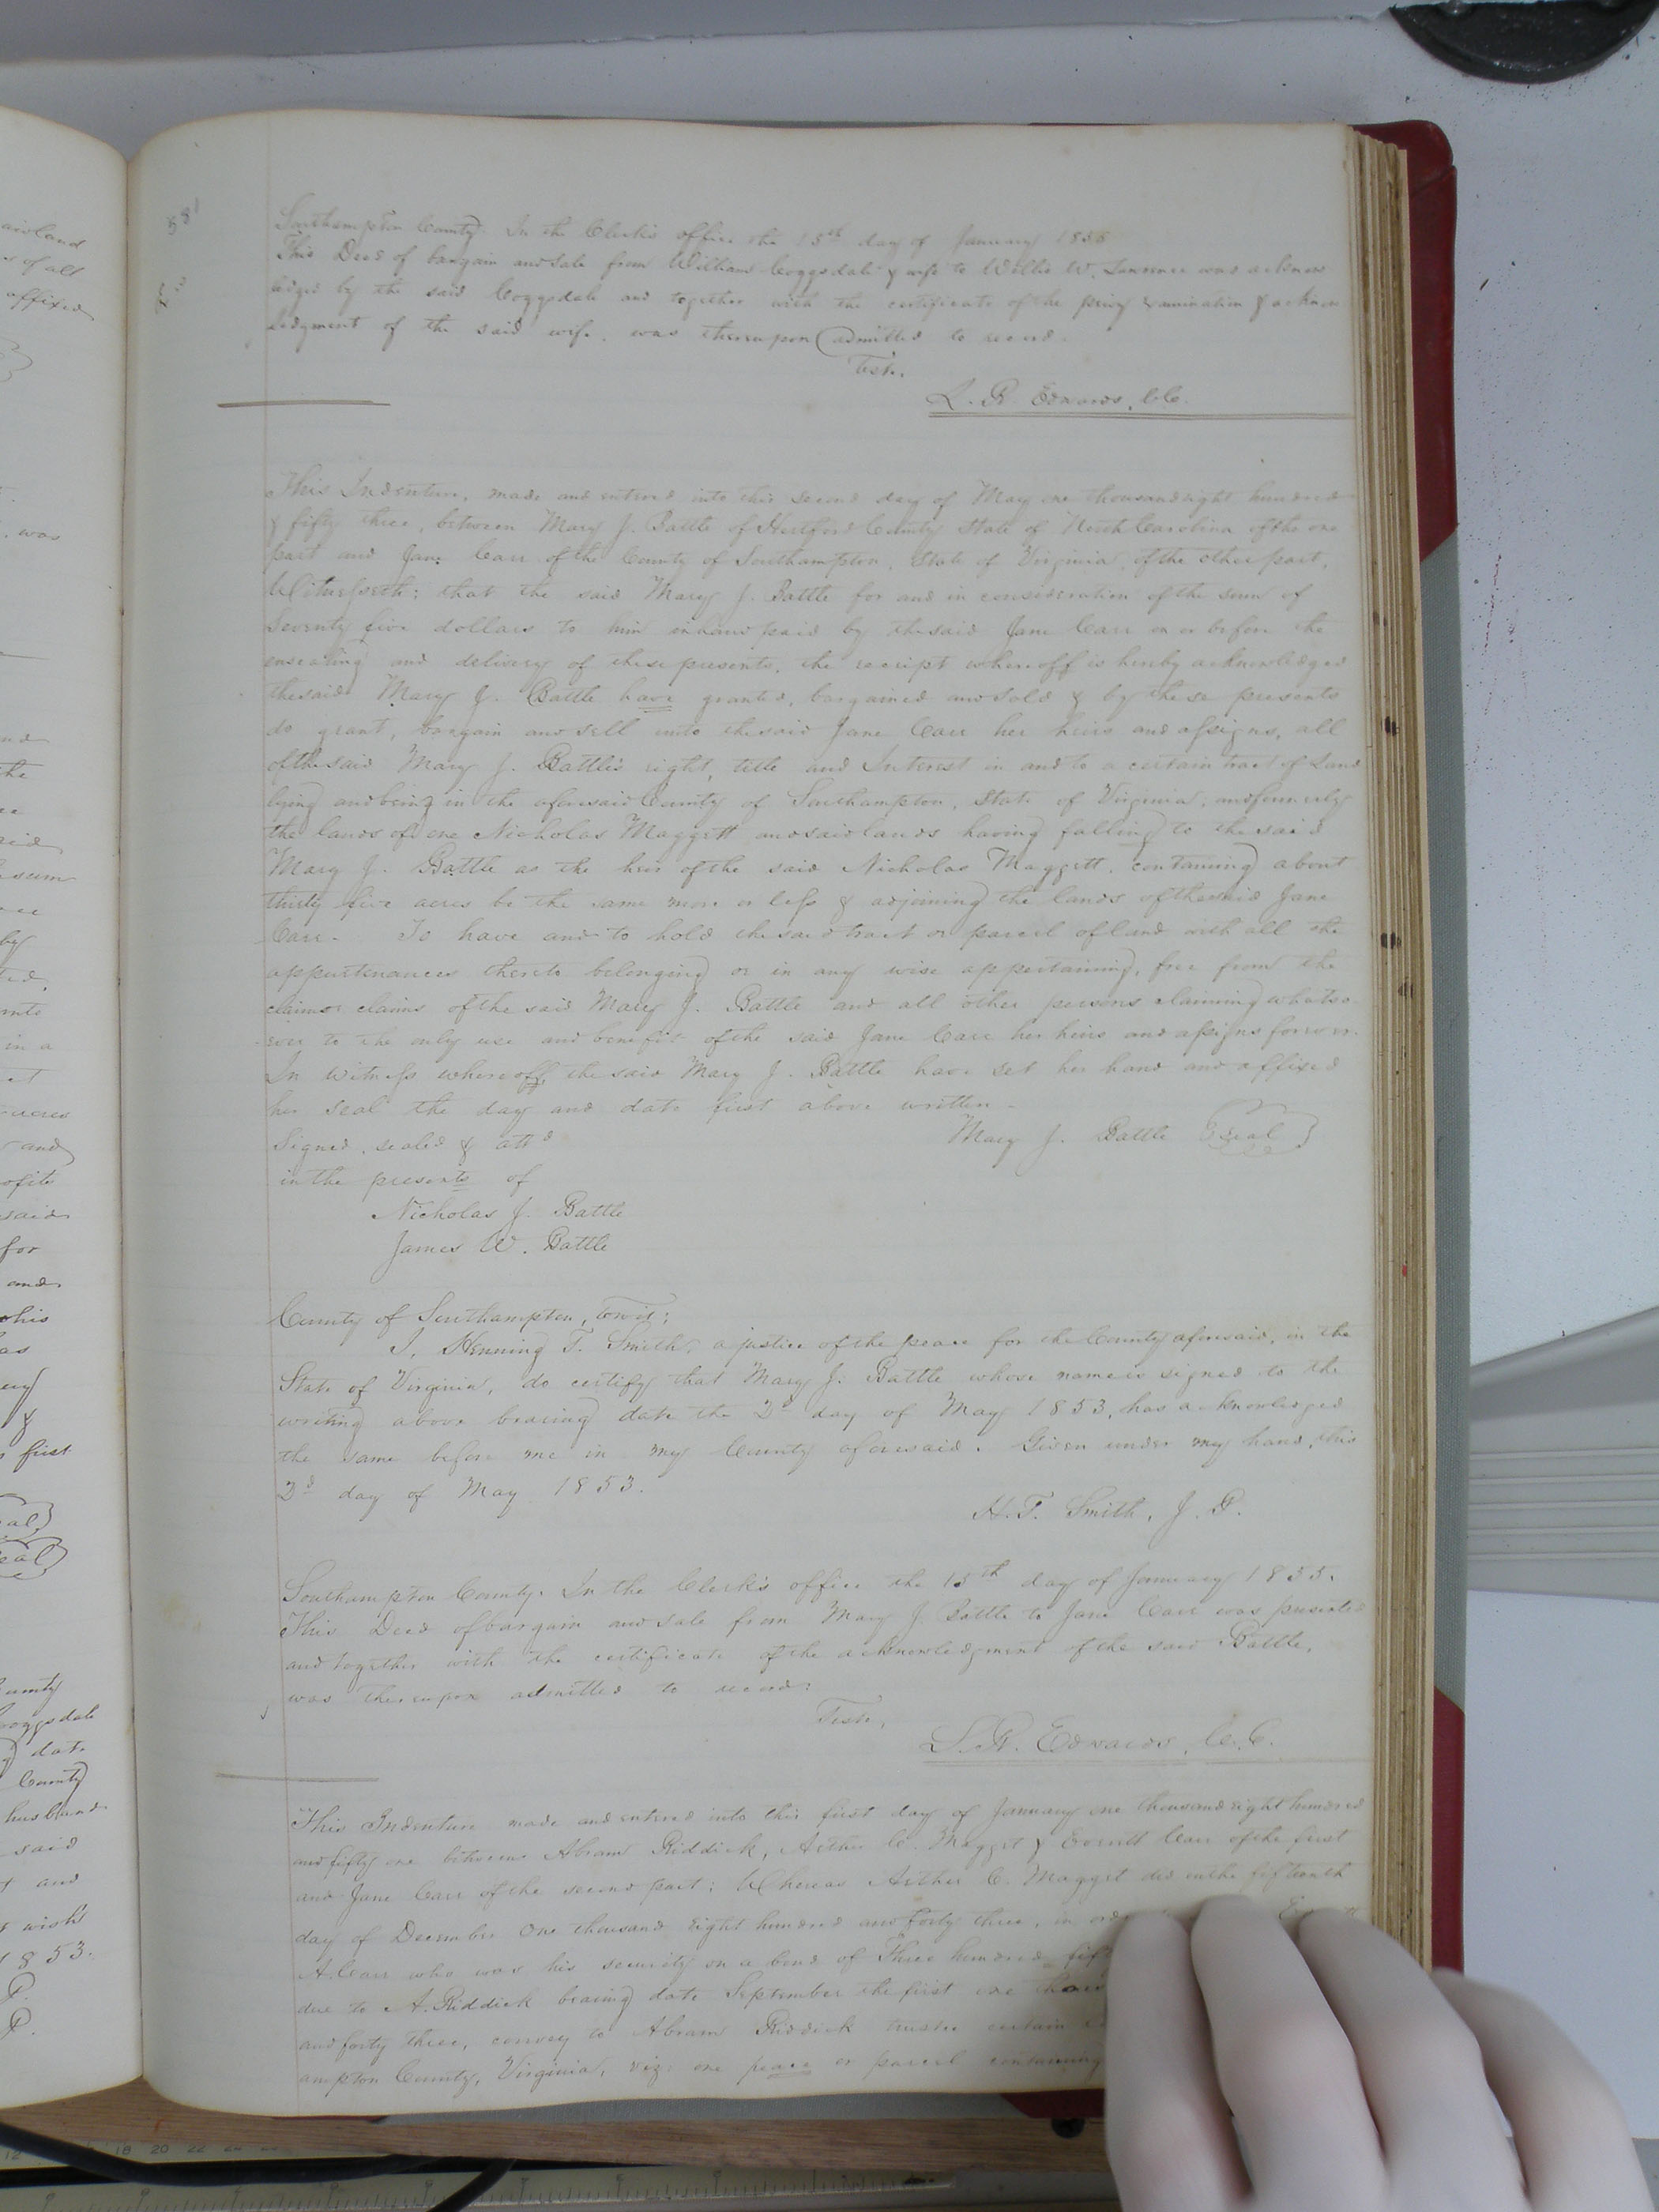 581
Southampton County. In the Clerk's office the 15th day of January 1855
This Deed of bargain and sale from William Coggsdale & wife to Willis W. Lawrence was acknow
ledged by the said Coggsdale and together with the certificate of the privy examination & acknow
ledgment of the said wife. was thereupon admitted to record.
Teste.
L. R. Edwards, C.C.
This Indenture, made and entered into this second day of May one thousand eight hundred
& fifty three, between Mary J. Battle of Hertford County State of North Carolina of the one
part and Jane Carr of the County of Southampton, State of Virginia, of the other part,
Witnesseth; that the said Mary J. Battle for and in consideration of the sum of
Seventy five dollars to him in hand paid by the said Jane Carr on or before the
ensealing and delivery of these presents, the receipt whereoff is hereby acknowledged
the said Mary J. Battle have granted, bargained and sold & by these presents
do grant, bargain and sell unto the said Jane Carr her heirs and assigns, all
of the said Mary J. Battle's right, title and Interest in and to a certain tract of Land
lying and being in the aforesaid County of Southampton, State of Virginia, and formerly
the lands of one Nicholas Maggett and said lands having falling to the said
Mary J. Battle as the heir of the said Nicholas Maggett, containing about
thirty five acres be the same more or less & adjoining the lands of the said Jane
Carr. To have and to hold the said tract or parcel of land with all the
appurtenances thereto belonging or in any wise appertaining, free from the
claims claims of the said Mary J. Battle and all other persons claiming whatso-
ever to the only use and benefit of the said Jane Carr her heirs and assigns forever.
In Witness whereoff, the said Mary J. Battle have set her hand and affixed
her seal the day and date first above written.
Signed, sealed & attd Mary J. Battle {Seal}
in the presents of
Nicholas J. Battle
James W. Battle
County of Southampton, towit;
I, Henning T. Smith, a justice of the peace for the County aforesaid, in the
State of Virginia, do certify that Mary J. Battle whose name is signed to the
writing above bearing date the 2d day of May 1853, has acknowledged
the same before me in my County aforesaid. Given under my hand, this
2d day of May 1853.
H. T. Smith, J. P.
Southampton County. In the Clerk's office the 15th day of January 1855.
This Deed of bargain and sale from Mary J. Battle to Jane Carr was presented
and together with the certificate of the acknowledgment of the said Battle,
was thereupon admitted to record:
Teste,
L. R. Edwards, C.C.
This Indenture made and entered into this first day of January one thousand eight hundred
and fifty one between Abram Riddick, Arther C. Magget & Everett Carr of the first
and Jane Carr of the second part; Whereas Arther C. Magget did on the fifteenth
day of December One thousand eight hundred and forty three, in
A. Carr who was his security on a bond of Three hundred
due to A. Riddick bearing date September the first one
and forty three, convey to Abram Riddick trustee certain
ampton County, Virginia, viz: one peace or parcel containing